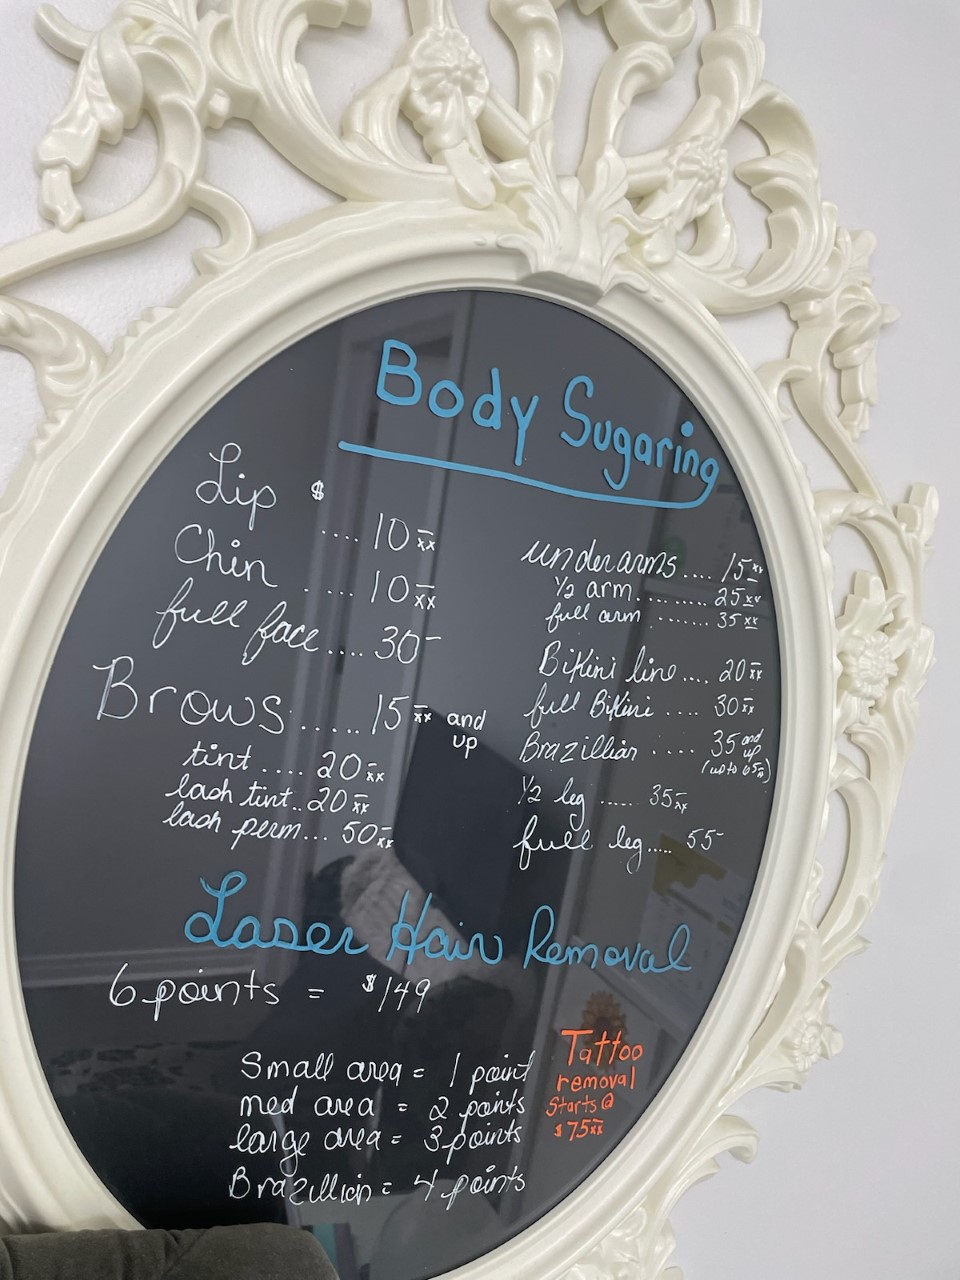 Body Sugaring
Lip $ .... 10 xx
Chin ..... 10 xx
full face.... 30-
Brows..... 15 xx and up
tint .... 20 xx
lash tint.. 20 xx
lash perm... 50 xx
underarms.... 15 xx
1/2 arm......... 25 xx
full arm ....... 35 xx
Bikini line.... 20 xx
full Bikini .... 30 xx
Brazillian .... 35 and up
(up to 65 xx)
1/2 leg ...... 35 xx
full leg..... 55-
Laser Hair Removal
6 points = $149
Small area = 1 point
med area = 2 points
large area = 3 points
Brazillian = 4 points
Tattoo
removal
Starts @
$75 xx